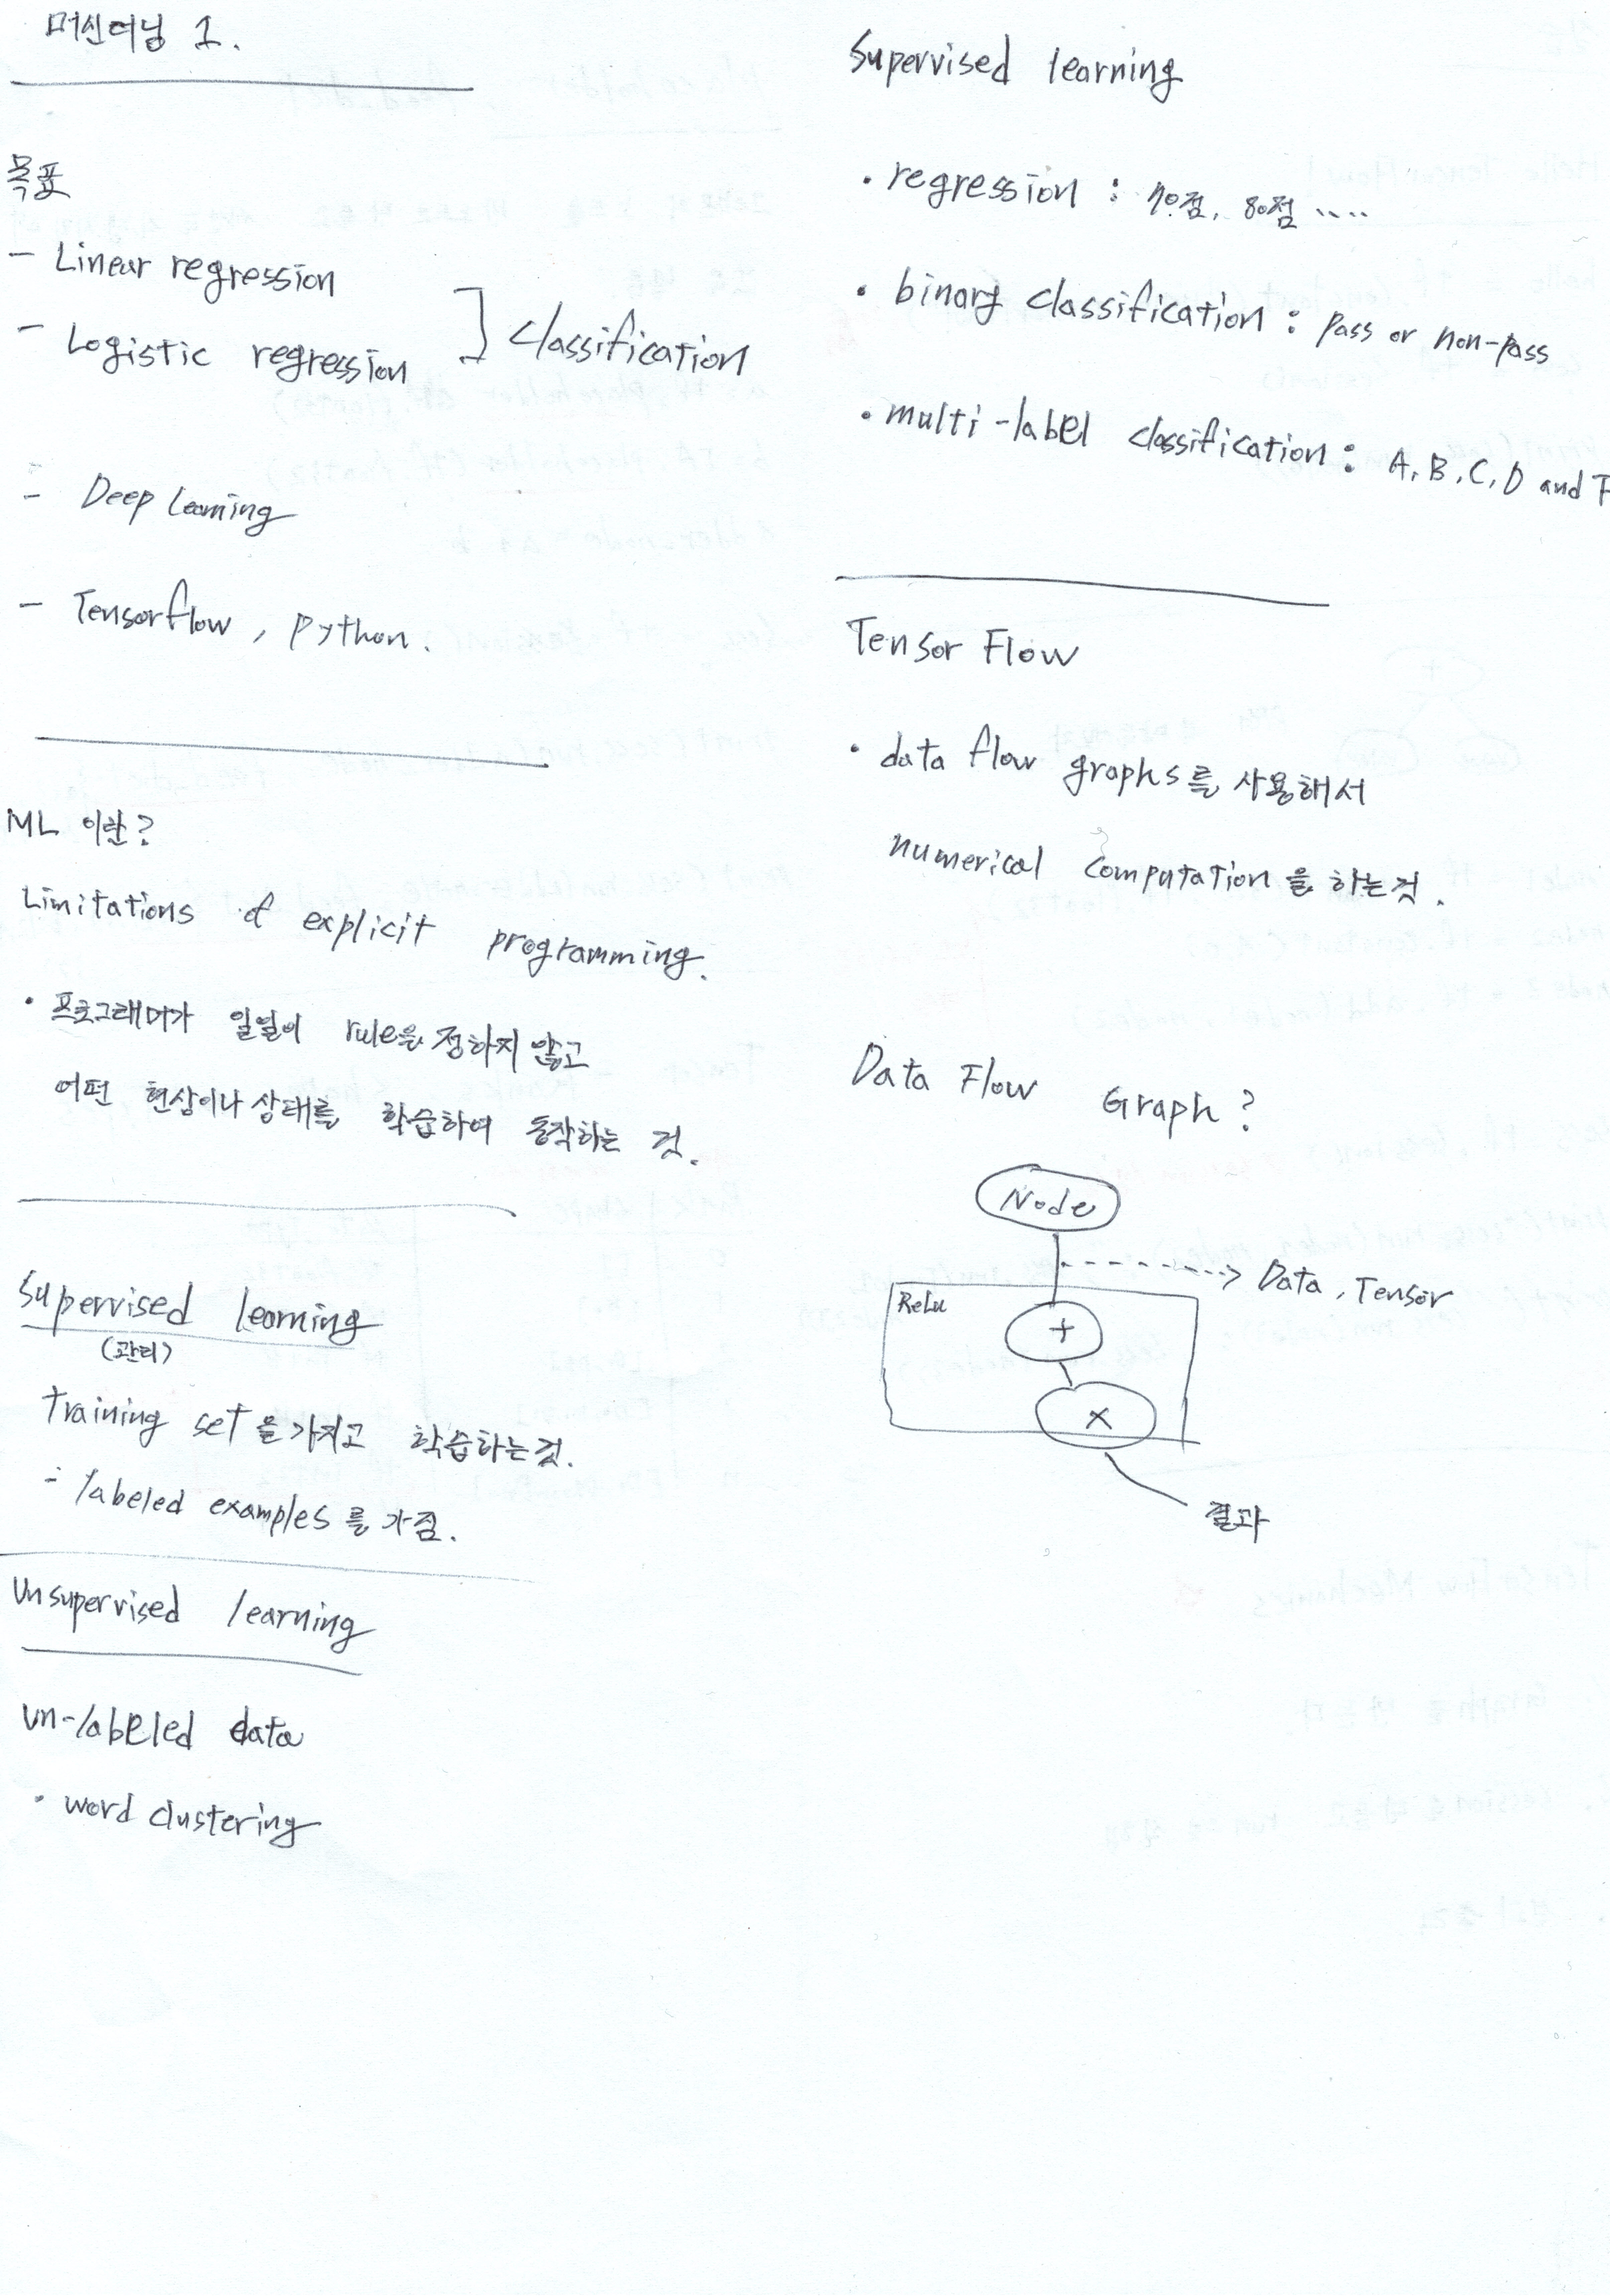 머신러닝 1.
목표
- Linear regression
- Logistic regression ] classification
- Deep Learning
- Tensorflow, python.
ML 이란?
Limitations of explicit programming.
• 프로그래머가 일일이 rule을 정하지 않고
어떤 현상이나 상태를 학습하여 동작하는 것.
Supervised learning
(관리)
training set을 가지고 학습하는것.
- labeled examples를 가짐.
Unsupervised learning
un-labeled data
• word clustering
Supervised learning
• regression : 70점, 80점 ....
• binary classification : pass or non-pass
• multi-label classification : A, B, C, D and F
Tensor Flow
• data flow graphs를 사용해서
numerical computation을 하는것.
Data Flow Graph?
Node
Data, Tensor
ReLu
+
×
결과